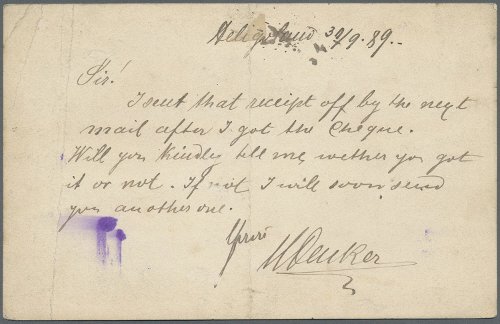 Heligoland 30/9. 89..
Sir!
I sent that receipt off by the next
mail after I got the Cheque.
Will you kindly tell me wether you got
it or not. If not I will soon send
you another one.